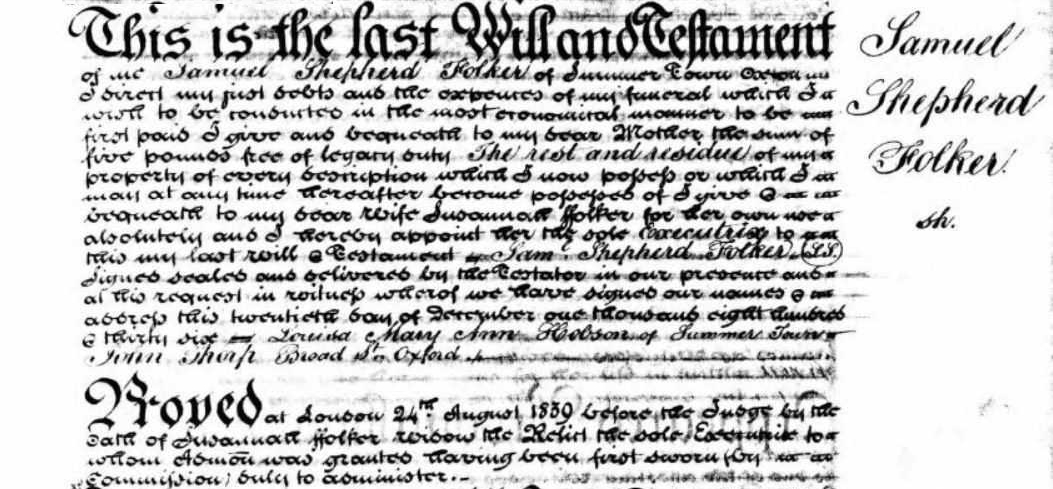 This is the last Will and Testament
of me Samuel Shepherd Folker of Summer Town Oxon
I direct my just debts and the expences of my funeral which I
wish to be conducted in the most economical manner to be
first paid I give and bequeath to my dear Mother the sum of
five pounds free of legacy duty The rest and residue of my
property of every description which I now possess or which I
may at any time hereafter become possessed of I give &
bequeath to my dear wife Susannah Folker for her own use
absolutely and I hereby appoint her the sole Executrix to
this my last will & Testament – Sam.l Shepherd Folker (LS)
Signed sealed and delivered by the Testator in our presence and
at his request in witness wherof we have signed our names &
address this twentieth day of December one thousand eight hundred
& thirty six – Louisa Mary Ann Hobson of Summer Town –
John Thorp Broad St. Oxford
Proved at London 24th August 1839 before the Judge by the
Oath of Susannah Folker widow the Relict the sole Executrix to
whom Admon was granted having been first sworn (by
Commission) duly to administer. –
Samuel
Shepherd
Folker
sh.